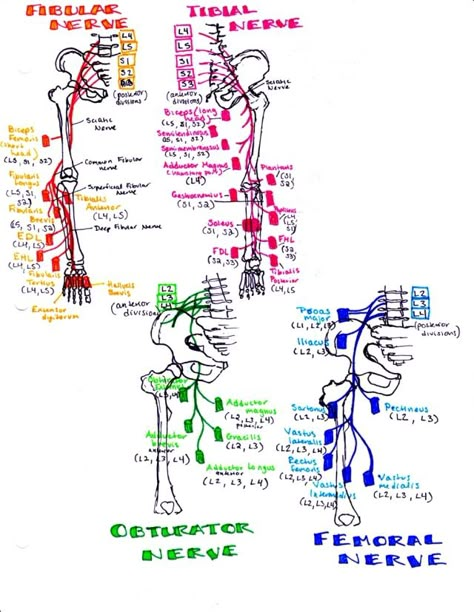 FIBULAR
NERVE
L4
L5
S1
S2
(posterior
divisions)
Sciatic
Nerve
Biceps
Femoris
(short
head)
(L5, S1, S2)
Common Fibular
nerve
Fibularis
Longus
(L5, S1
S2)
Superficial Fibular
Nerve
Fibularis
Brevis
(L5, S1, S2)
Tibialis
Anterior
(L4, L5)
Deep Fibular Nerve
EDL
(L4, L5)
EHL
(L4, L5)
Fibularis
Tertius
(L4, L5)
Hallucis
Brevis
Extensor
digitorum
TIBIAL
NERVE
L4
L5
S1
S2
S3
(anterior
divisions)
Sciatic
Nerve
Biceps (long
head)
(L5, S1, S2)
Semitendinosus
(L5, S1, S2)
Semimembranosus
(L5, S1, S2)
Adductor Magnus
(hamstring part)
(L4)
Plantaris
(S1,
S2)
Gastrocnemius
(S1, S2)
Soleus
(S1, S2)
FDL
(S2,
S3)
FHL
(S2,
S3)
Tibialis
Posterior
(L4, L5
L2
L3
L4
(anterior
division)
Obturator
Externus
Adductor
magnus
(L2, L3,
L4)
Gracilis
(L2, L3)
Adductor
brevis
(L2, L3, L4)
Adductor Longus
(L2, L3, L4)
OBTURATOR
NERVE
L2
L3
L4
(posterior
divisions)
Psoas
major
(L1, L2, L3)
Iliacus
(L2, L3)
Sartorius
(L2, L3)
Pectineus
(L2, L3)
Vastus
lateralis
(L2, L3, L4)
Rectus
femoris
(L2, L3, L4)
Vastus
Intermedius
(L2, L3, L4)
Vastus
medialis
(L2, L3, L4)
FEMORAL
NERVE